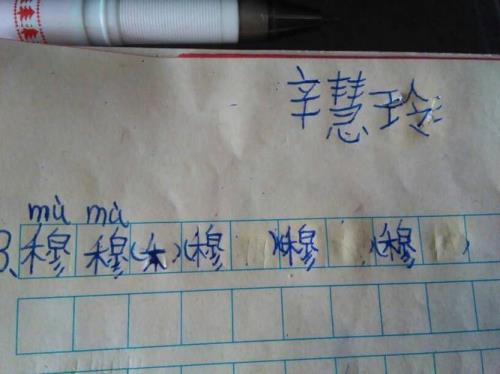 辛慧玲
mù mù
3、穆 穆( )(穆 )(穆 )(穆 )